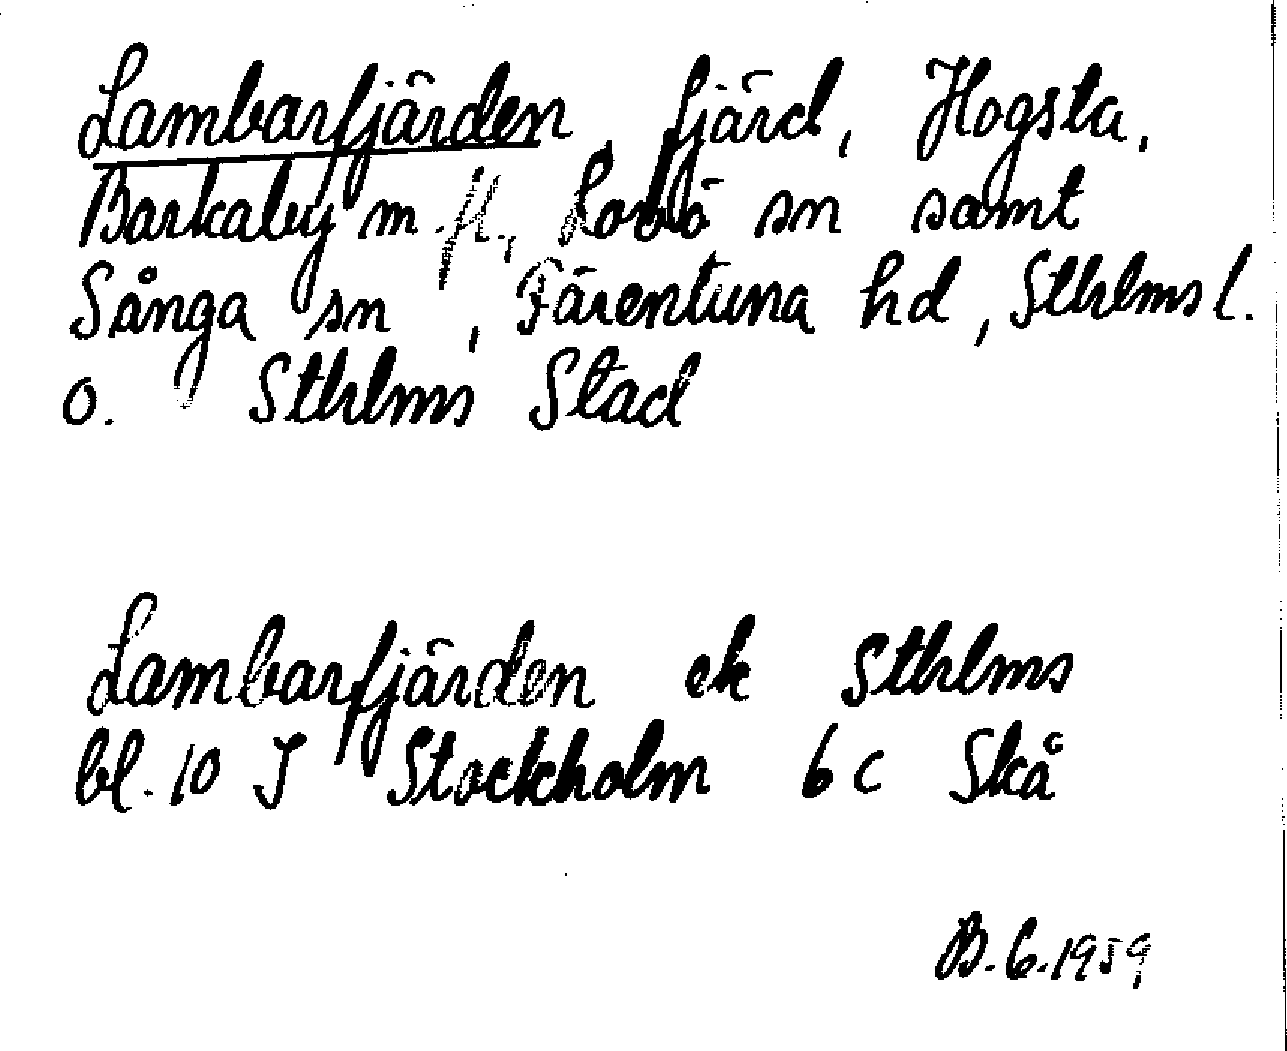 Lambarfjärden, fjärd, Hogsta,
Barkaby m.fl., Lovö sn samt
Sånga sn, Färentuna hd, Sthlms l.
o. Sthlms Stad
Lambarfjärden ek Sthlms
bl. 10 I Stockholm 6 c Skå
B.G.1959